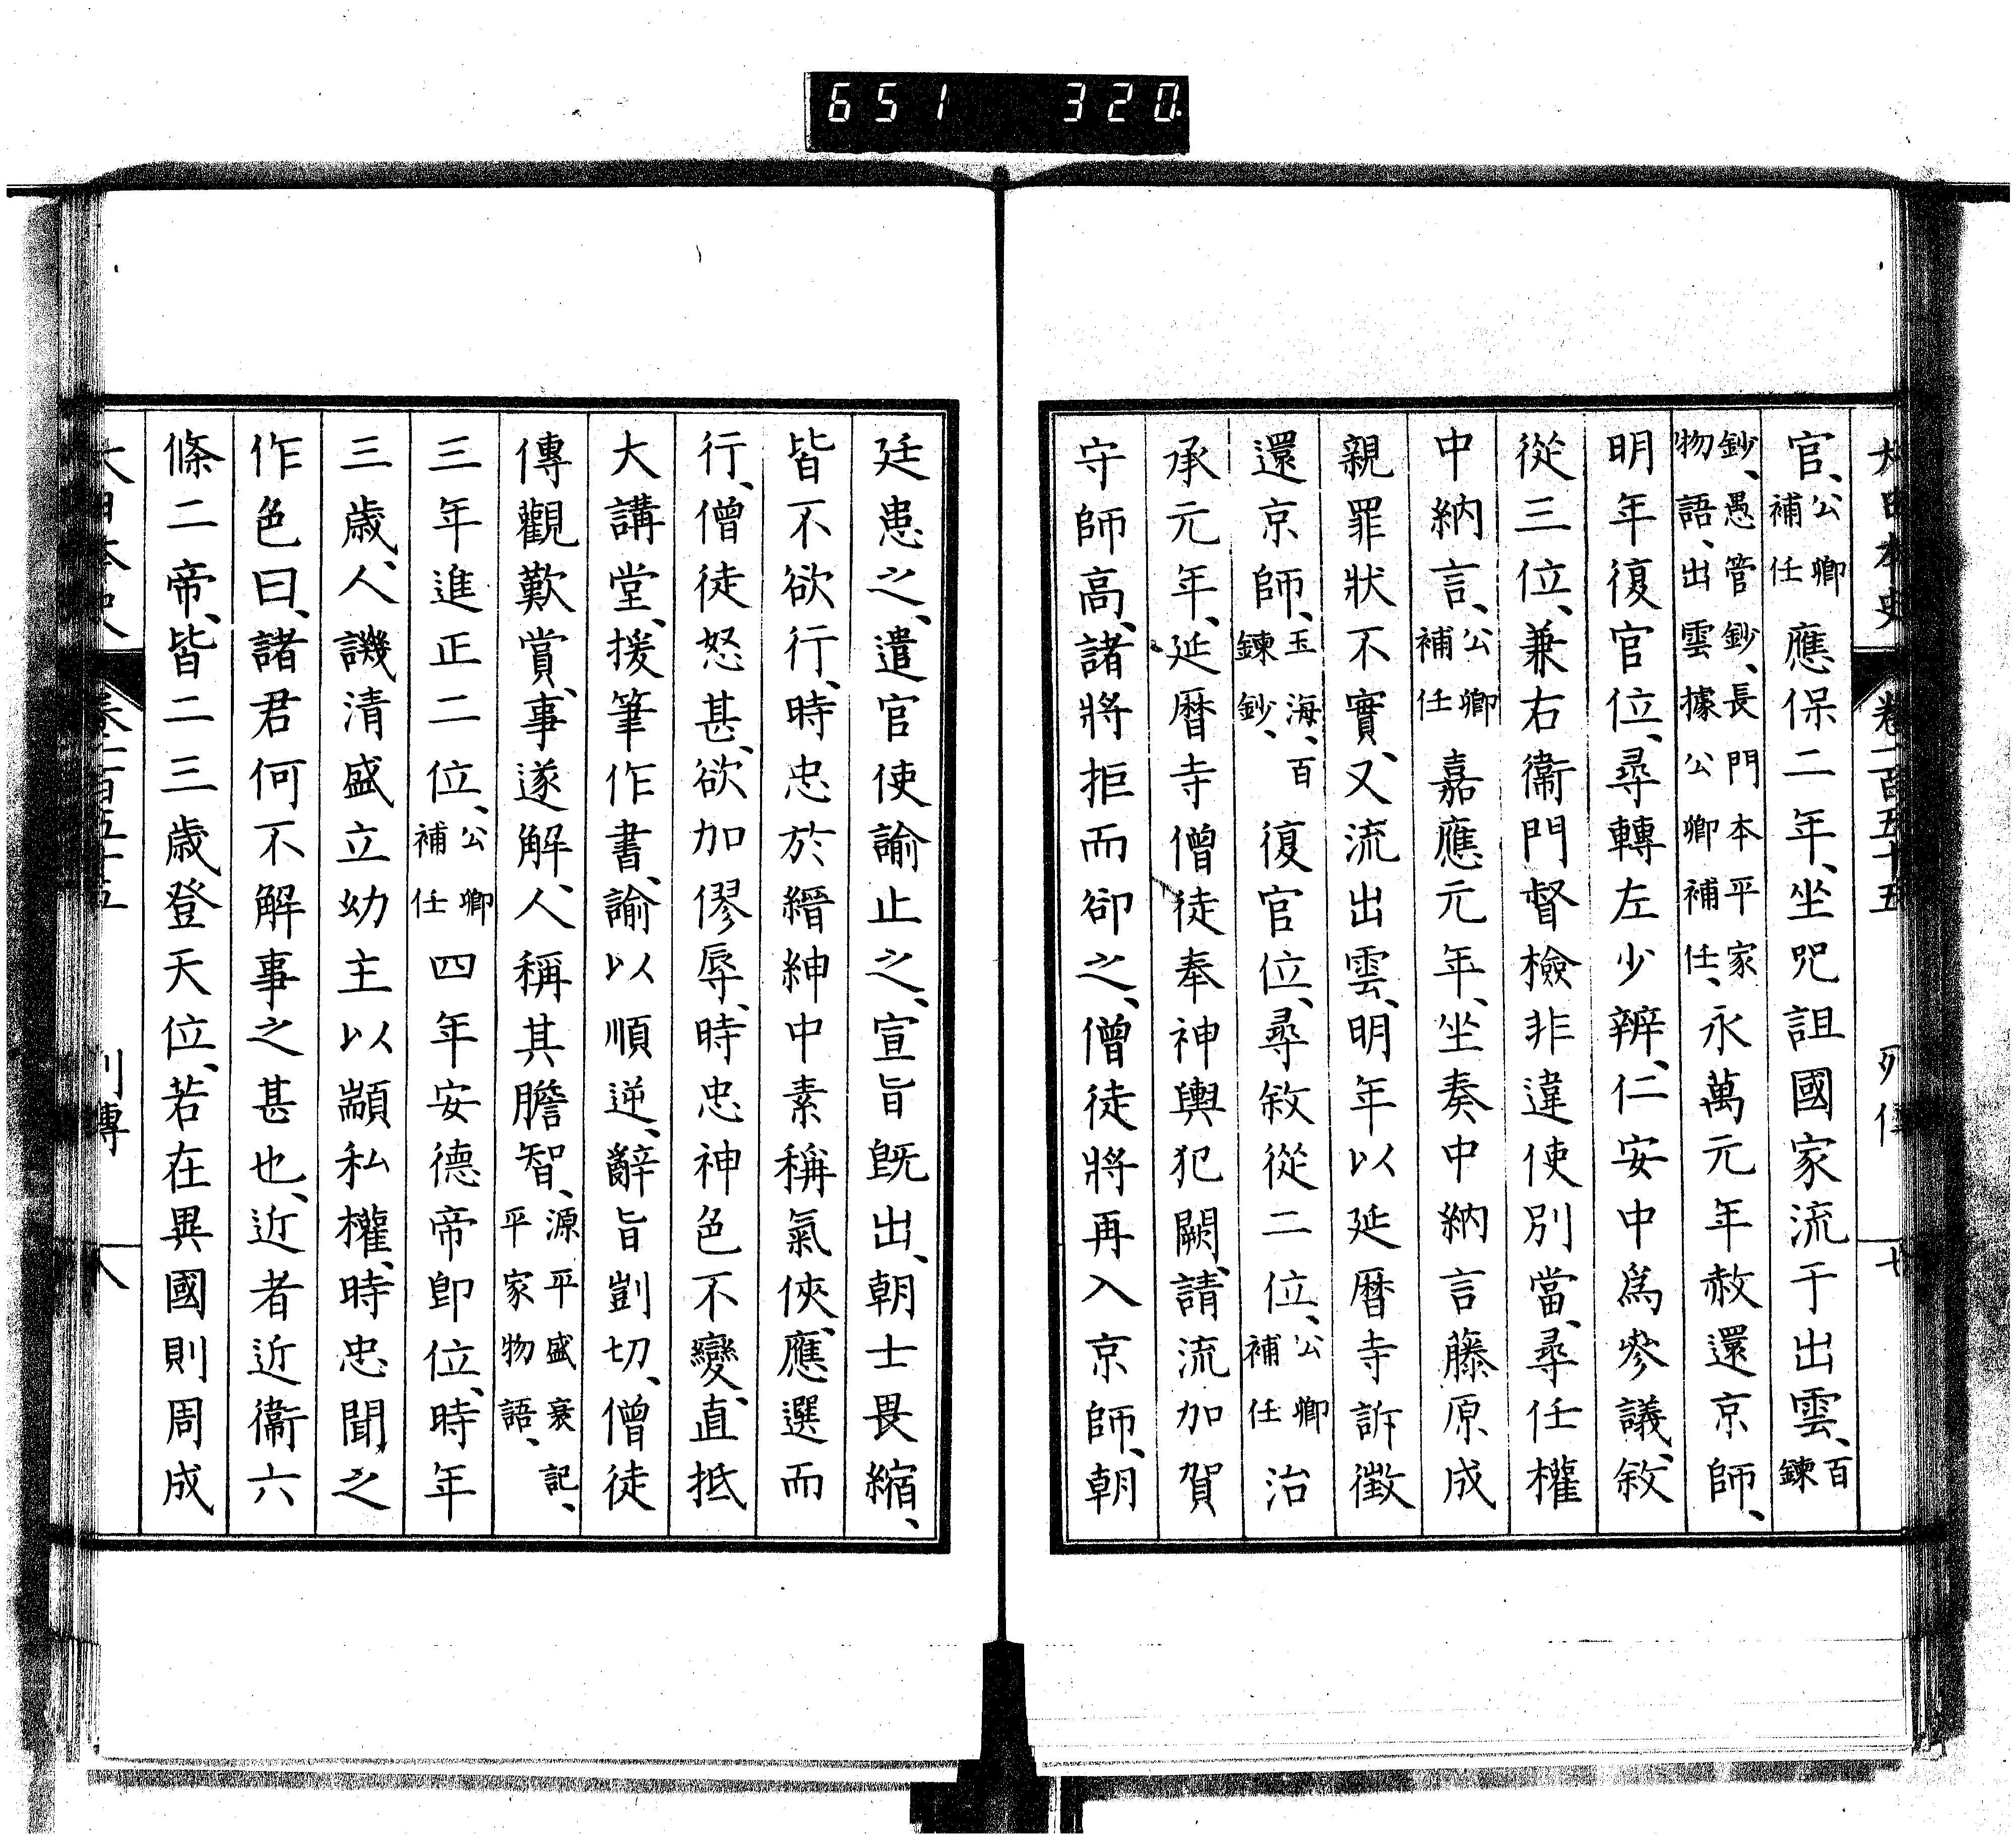 651 320
大日本史 卷一百五十五 列傳 七
官、公卿補任應保二年、坐咒詛國家流于出雲、百鍊
鈔、愚管鈔、長門本平家物語、出雲據公卿補任、永萬元年赦還京師、
明年復官位、尋轉左少辨、仁安中爲參議、敘
從三位、兼右衞門督檢非違使別當、尋任權
中納言、公卿補任嘉應元年、坐奏中納言藤原成
親罪狀不實、又流出雲、明年以延曆寺訴徵
還京師、玉海、百鍊鈔、復官位、尋敘從二位、公卿補任治
承元年、延曆寺僧徒奉神輿犯闕、請流加賀
守師高、諸將拒而卻之、僧徒將再入京師、朝
廷患之、遣官使諭止之、宣旨旣出、朝士畏縮、
皆不欲行、時忠於縉紳中素稱氣俠、應選而
行、僧徒怒甚、欲加僇辱、時忠神色不變、直抵
大講堂、援筆作書、諭以順逆、辭旨剴切、僧徒
傳觀歎賞、事遂解、人稱其膽智、源平盛衰記、平家物語、
三年進正二位、公卿補任四年安德帝卽位、時年
三歲、人譏淸盛立幼主以顓私權、時忠聞之
作色曰、諸君何不解事之甚也、近者近衞六
條二帝、皆二三歲登天位、若在異國則周成
大日本史 卷一百五十五 列傳 八